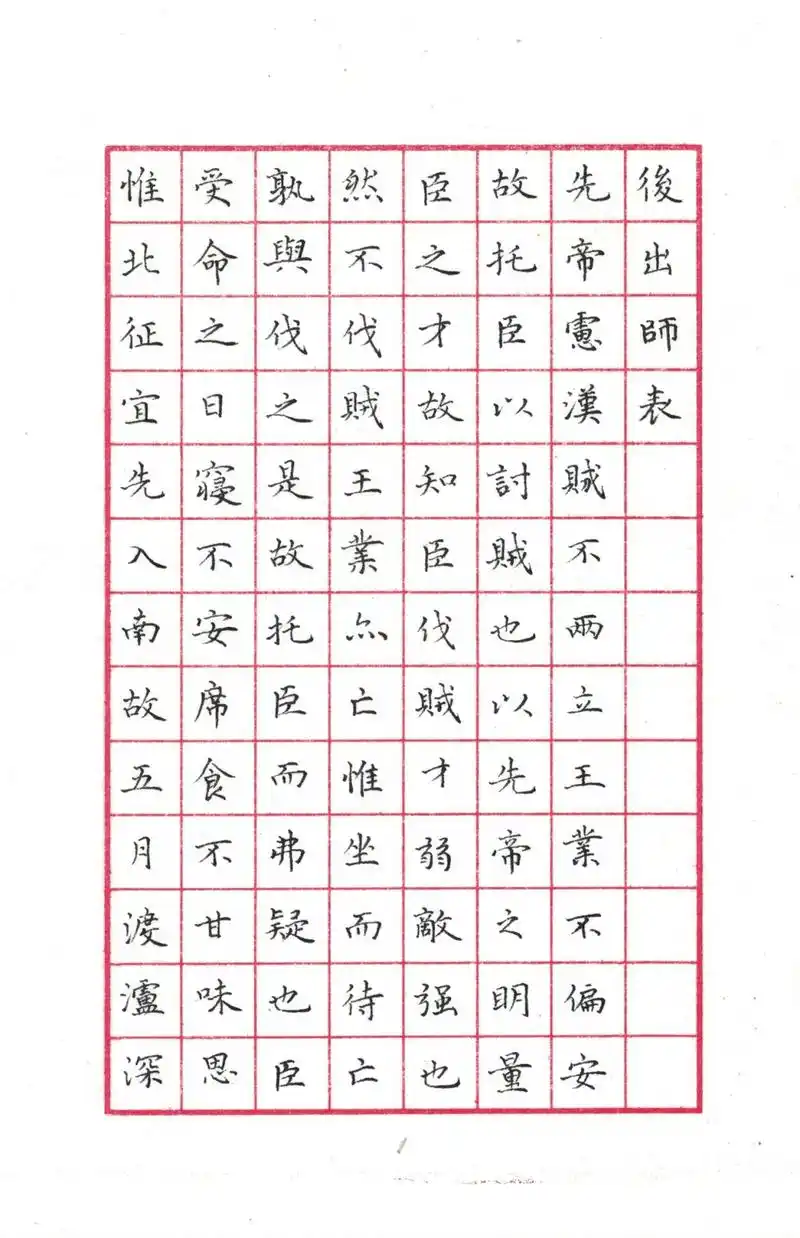 後出師表
先帝慮漢賊不兩立王業不偏安
故托臣以討賊也以先帝之明量
臣之才故知臣伐賊才弱敵强也
然不伐賊王業亦亡惟坐而待亡
孰與伐之是故托臣而弗疑也臣
受命之日寢不安席食不甘味思
惟北征宜先入南故五月渡瀘深